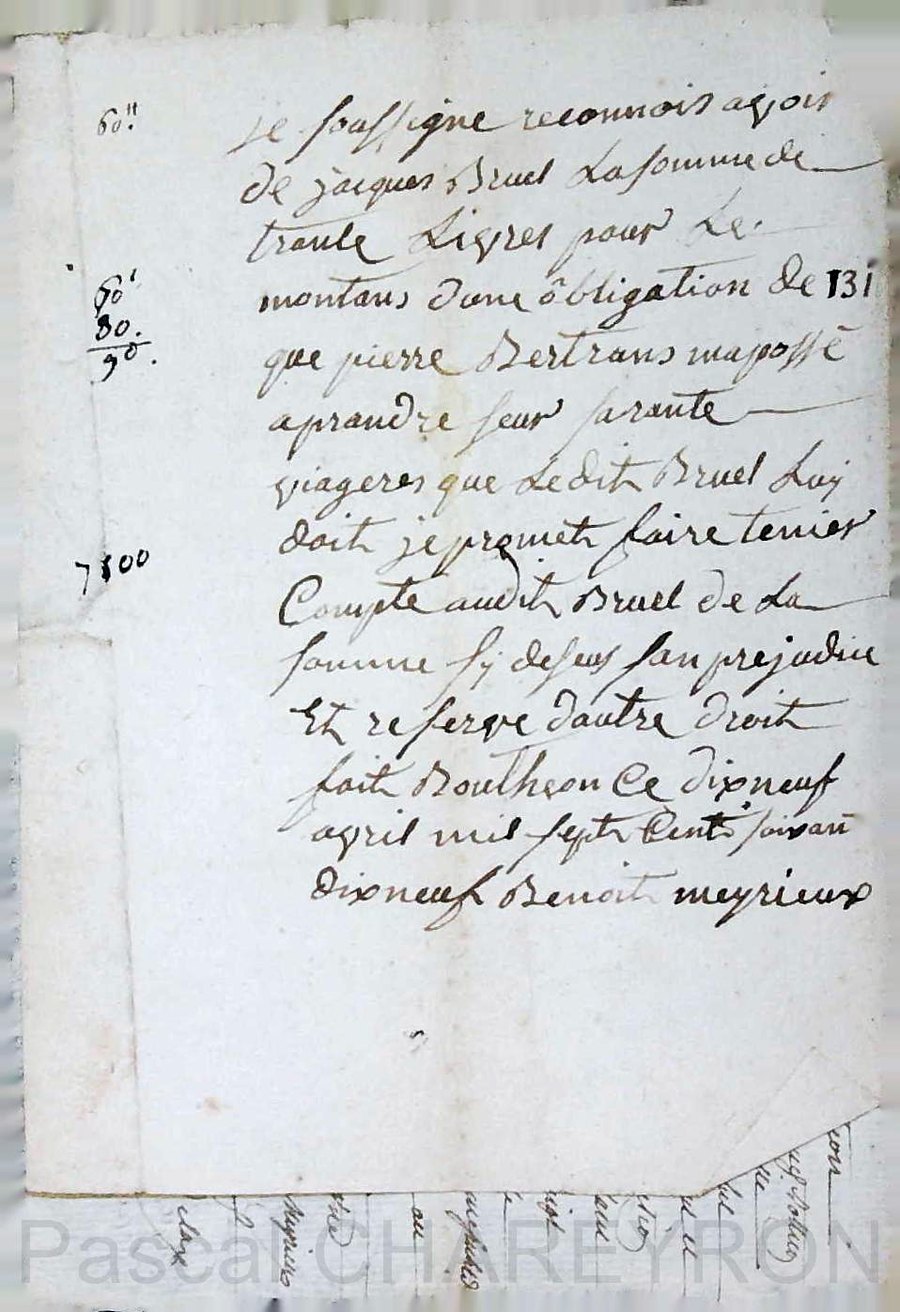 60"
je soussigne reconnois avoir
de jacques Bruel La somme de
trante Livres pour Le
60'
30.
90.
montans dune ôbligation de 131
que pierre Bertrans ma possé
a prandre seur sa rante
viageres que Ledit Bruel Luy
doit je promet faire tenier
7800
Compte audit Bruel de La
somme sy deseus san prejudice
Et reserve dautre droit
fait Boutheon Ce dixneuf
avril mil sept Cent soixan
dixneuf Benoit meyrieux
Pascal CHAREYRON